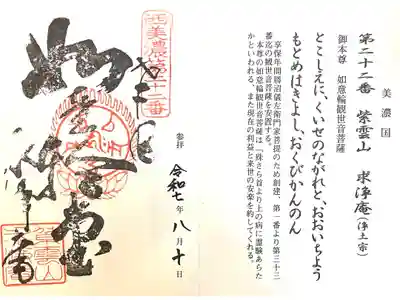 美濃国
第二十二番　紫雲山　求浄庵（浄土宗）
御本尊　如意輪観世音菩薩
とこしえに、くいせのながれと、おおいちょう
もとめはきよし、おくびかんのん
享保年間勝沼儀左衛門家菩提のため創建、第一番より第三十三
番迄の観世音菩薩を安置する。
本尊の如意輪観世音菩薩は「殊さら首より上の病に霊験あらた
か」といわれる。また現在の利益と来世の安楽を約してくれる。
参拝　令和七年八月十日
西美濃第二十二番
求浄庵
紫雲山